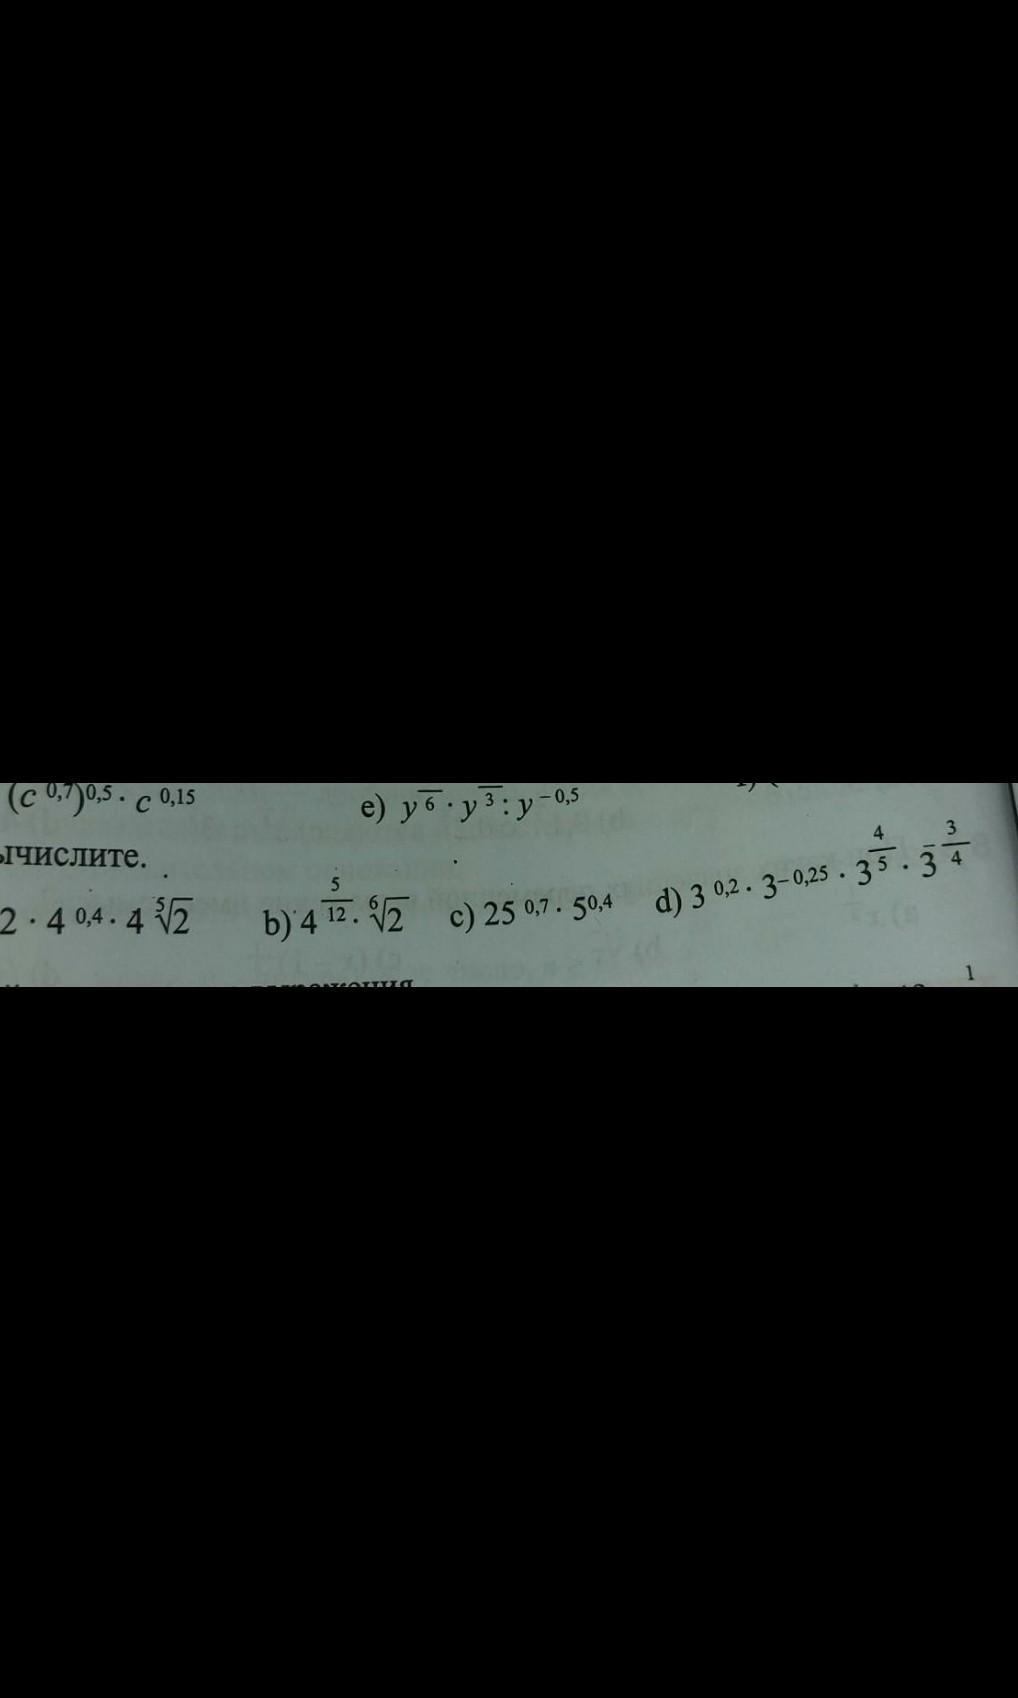 (c^0,7)^0,5 · c^0,15 e) y^6 · y^3 : y^−0,5
ычислите.
2 · 4^0,4 · 4 ⁵√2 b) 4^5/12 · ⁶√2 c) 25^0,7 · 5^0,4 d) 3^0,2 · 3^−0,25 · 3^4/5 · 3^−3/4
1